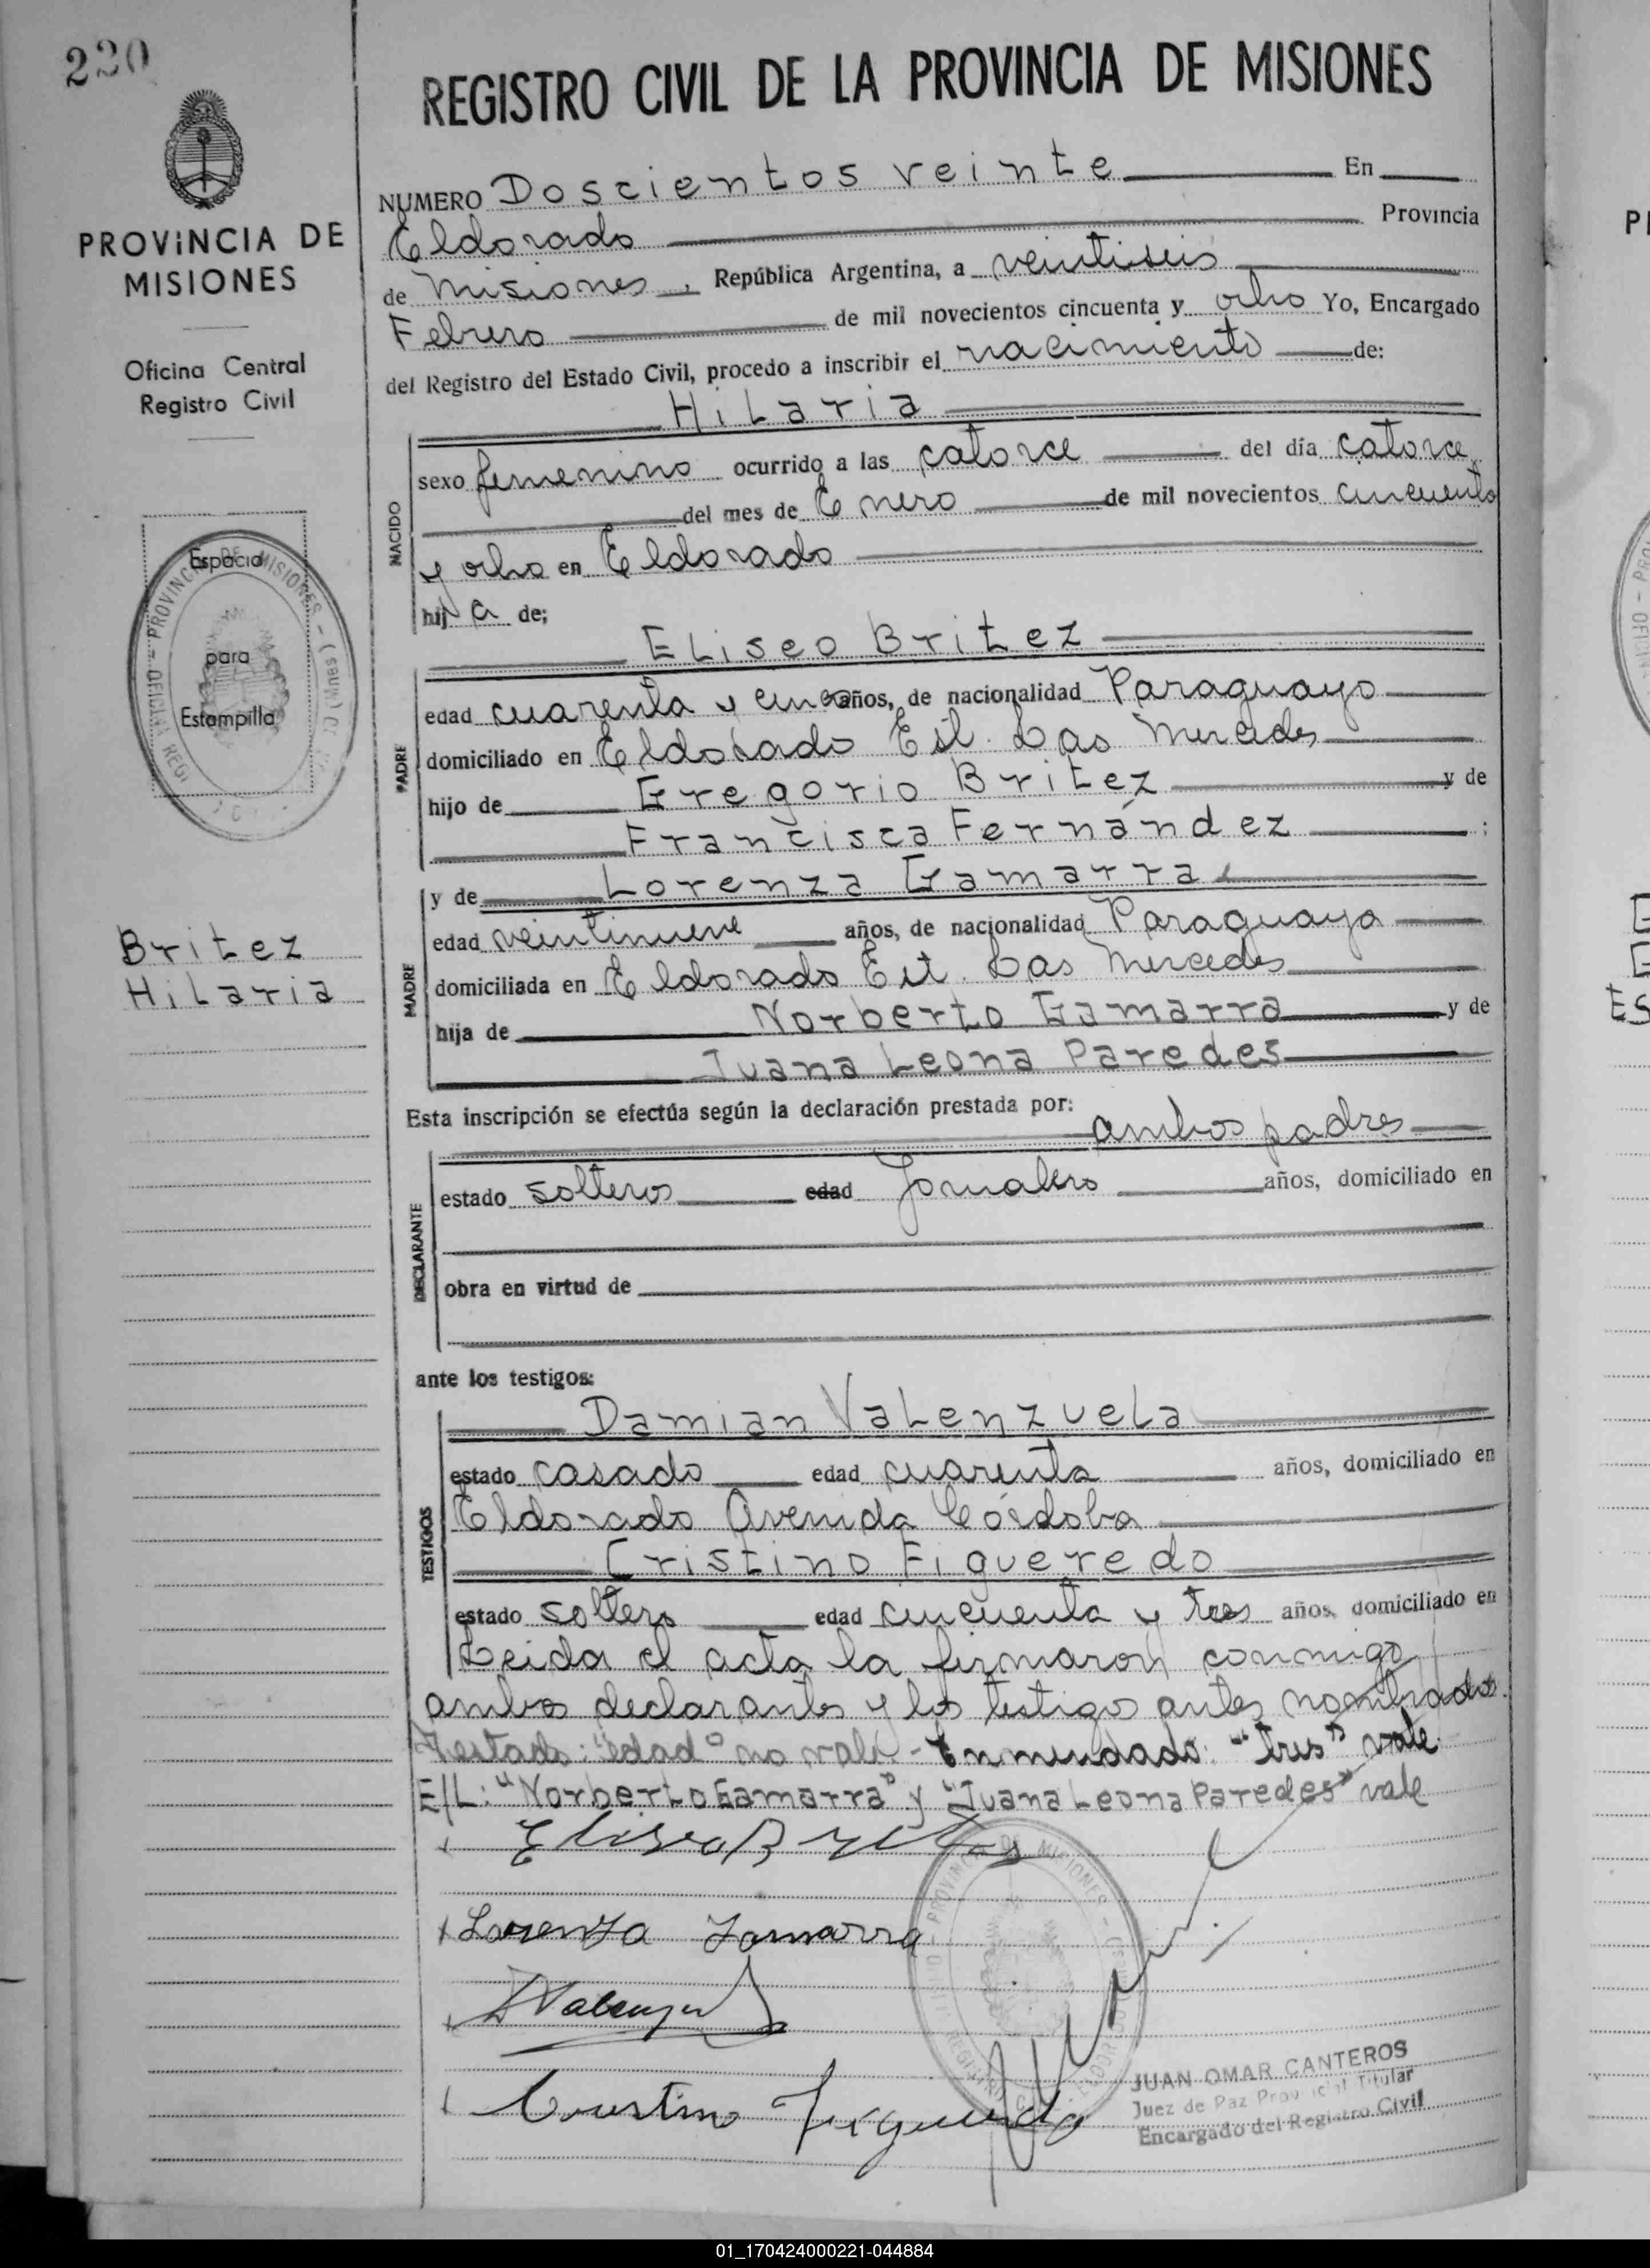 220
PROVINCIA DE
MISIONES
Oficina Central
Registro Civil
Espacio
para
Estampilla
Britez
Hilaria
REGISTRO CIVIL DE LA PROVINCIA DE MISIONES
NUMERO Doscientos veinte En
Eldorado Provincia
de Misiones, República Argentina, a veintiseis
Febrero de mil novecientos cincuenta y ocho Yo, Encargado
del Registro del Estado Civil, procedo a inscribir el nacimiento de:
Hilaria
NACIDO
sexo femenino ocurrido a las catorce del día catorce
del mes de Enero de mil novecientos cincuenta
y ocho en Eldorado
hij a de;
Eliseo Britez
PADRE
edad cuarenta y cinco años, de nacionalidad Paraguayo
domiciliado en Eldorado Est. Las Mercedes
hijo de Gregorio Britez y de
Francisca Fernández ;
y de Lorenza Gamarra
MADRE
edad veintinueve años, de nacionalidad Paraguaya
domiciliada en Eldorado Est. Las Mercedes
hija de Norberto Gamarra y de
Juana Leona Paredes
Esta inscripción se efectúa según la declaración prestada por:
ambos padres
DECLARANTE
estado solteros edad Jornalero años, domiciliado en
obra en virtud de
ante los testigos:
Damian Valenzuela
TESTIGOS
estado casado edad cuarenta años, domiciliado en
Eldorado Avenida Córdoba
Cristino Figueredo
estado soltero edad cincuenta y tres años, domiciliado en
Leida el acta la firmaron conmigo
ambos declarantes y los testigo antes nombrados.
Testado: "edad" no vale - Enmendado: "tres" vale
E/L: "Norberto Gamarra" y "Juana Leona Paredes" vale
Eliseo Britez
Lorenza Gamarra
DValenzuela
Cristino Figueredo
JUAN OMAR CANTEROS
Juez de Paz Provincial Titular
Encargado del Registro Civil
01_170424000221-044884